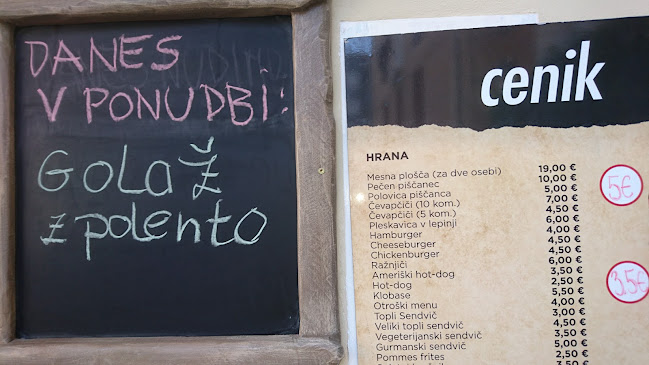 DANES
V PONUDBI:
GOLAŽ
Z POLENTO
cenik
HRANA
Mesna plošča (za dve osebi) 19,00 €
Pečen piščanec 10,00 €
Polovica piščanca 5,00 €
Čevapčiči (10 kom.) 7,00 €
Čevapčiči (5 kom.) 4,50 €
Pleskavica v lepinji 6,00 €
Hamburger 4,00 €
Cheeseburger 4,50 €
Chickenburger 4,50 €
Ražnjiči 6,00 €
Ameriški hot-dog 3,50 €
Hot-dog 2,50 €
Klobase 5,50 €
Otroški menu 4,00 €
Topli Sendvič 3,00 €
Veliki topli sendvič 4,50 €
Vegeterijanski sendvič 3,50 €
Gurmanski sendvič 5,00 €
Pommes frites 2,50 €
3,50 €
5€
3.5€